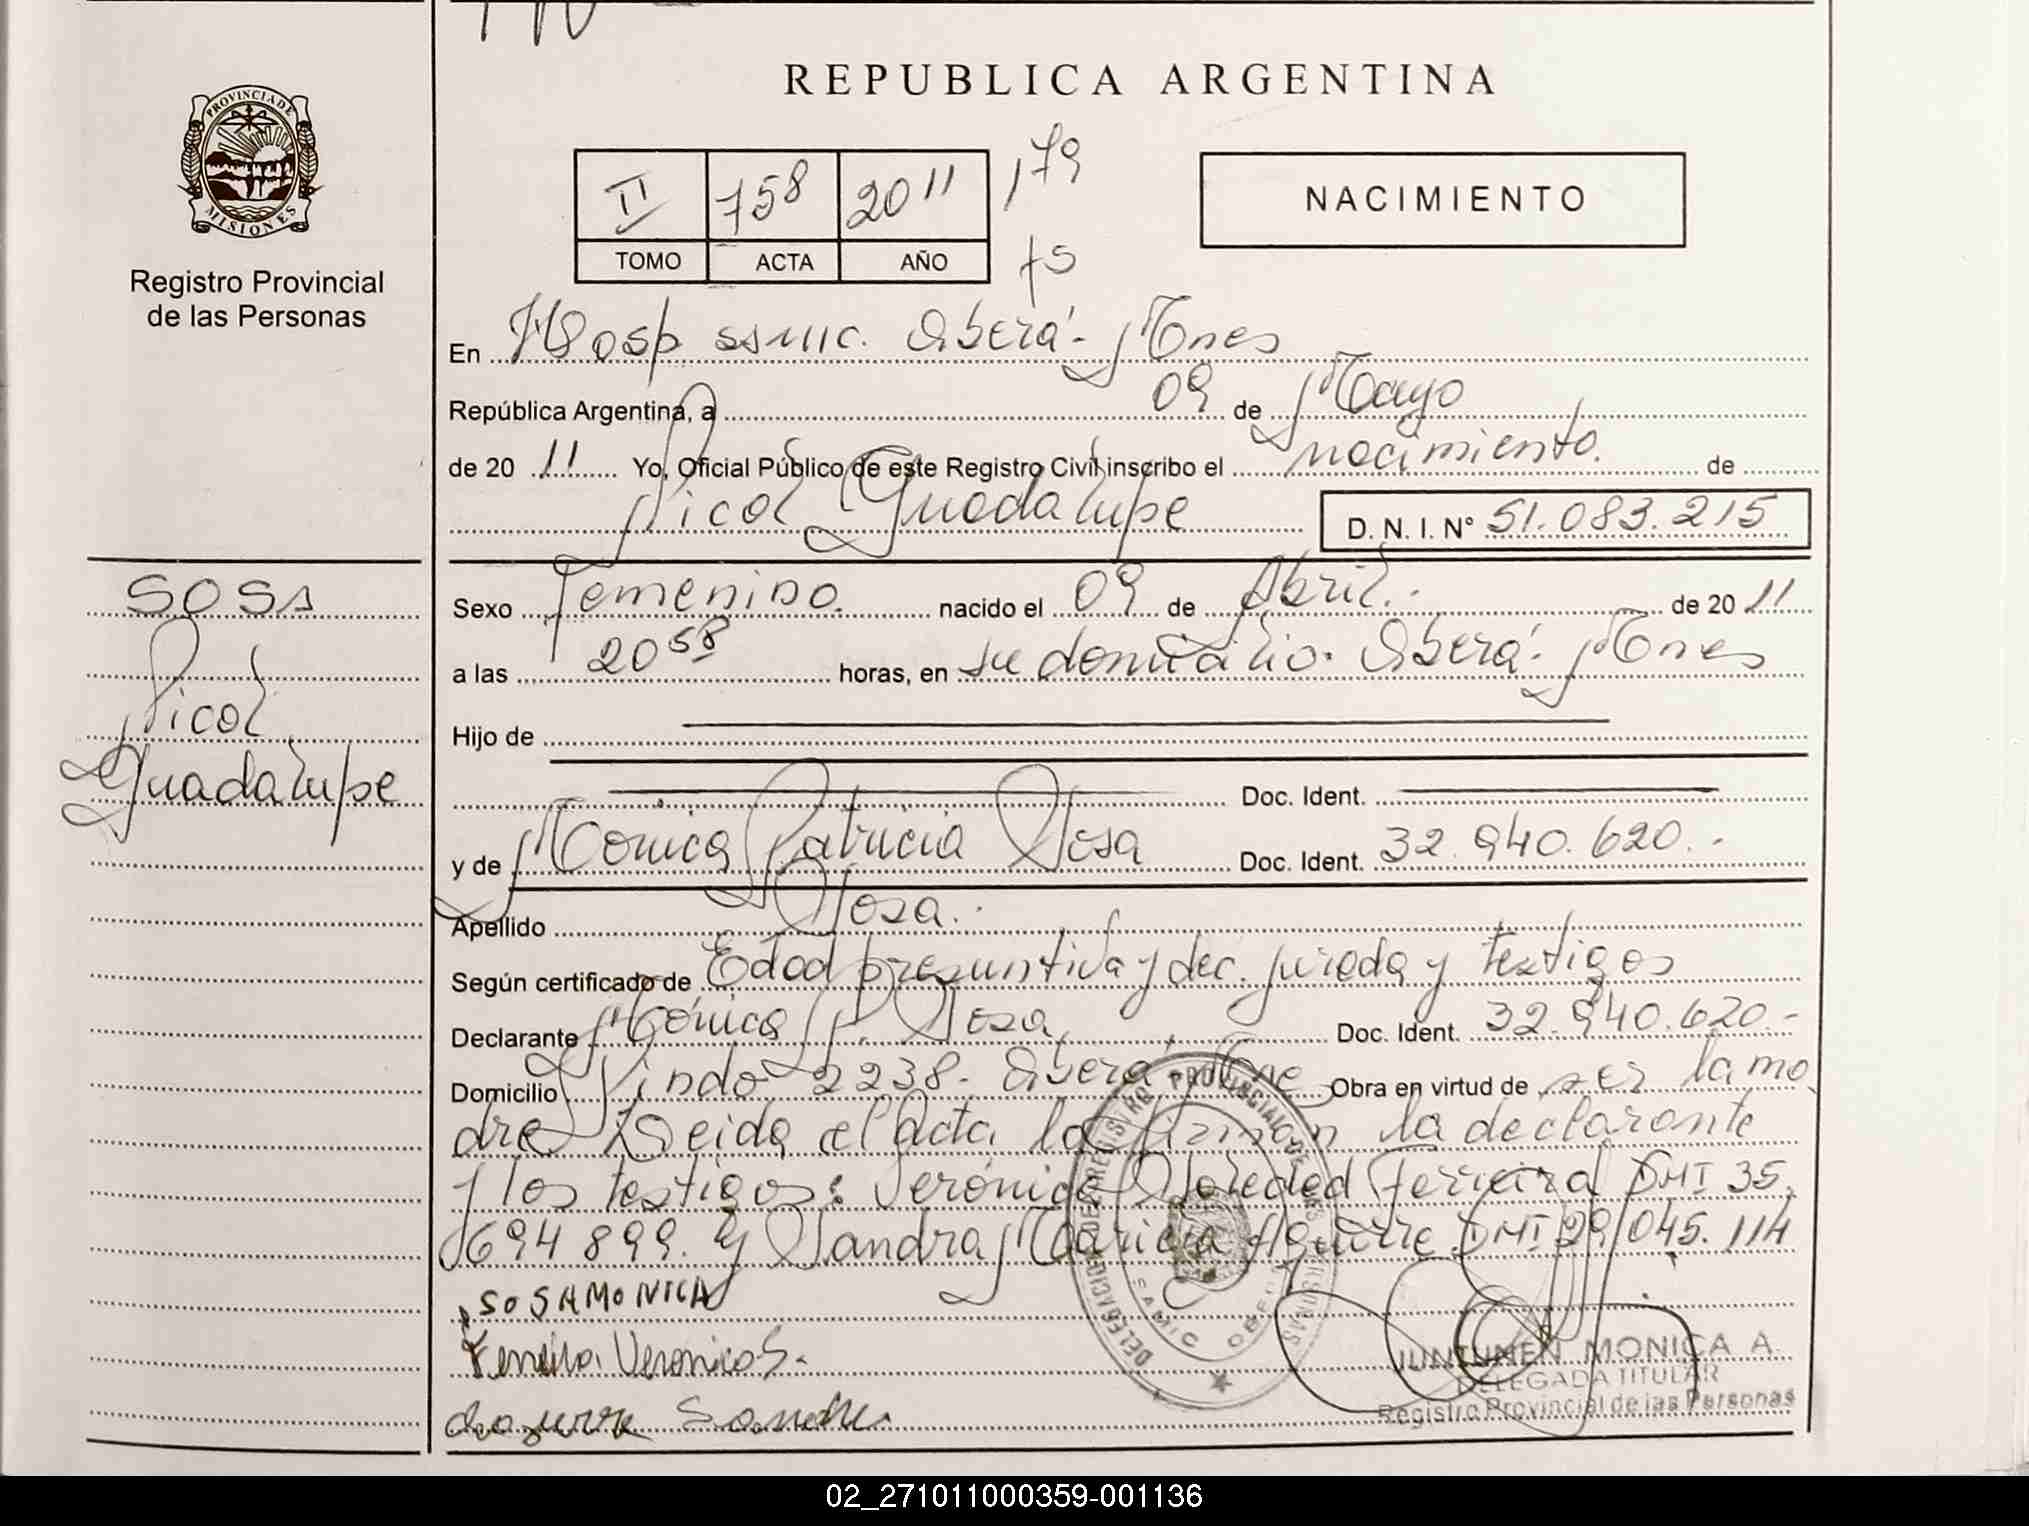 REPUBLICA ARGENTINA
PROVINCIA DE MISIONES
Registro Provincial
de las Personas
II 758 2011 179
TOMO ACTA AÑO 75
NACIMIENTO
En Hosp ssmic. Oberá - Mnes
República Argentina, a 09 de Mayo
de 20 11 Yo, Oficial Público de este Registro Civil inscribo el nacimiento. de
Nicol Guadalupe D. N. I. N° 51.083.215
SOSA
Nicol
Guadalupe
Sexo Femenino. nacido el 09 de Abril.. de 20 11
a las 20 58 horas, en su domicilio. Oberá - Mnes
Hijo de
Doc. Ident.
y de Mónica Patricia Sosa Doc. Ident. 32.940.620.-
Apellido Sosa..
Según certificado de Edad presuntiva y dec. jurada y testigos
Declarante Mónica P. Sosa Doc. Ident. 32.940.620.-
Domicilio Pindo 2238. Oberá Mne Obra en virtud de ser la ma
dre Leida el Acta la firman la declarante
y los testigos: Verónica Soledad Ferreira DNI 35.
694 899. y Sandra Mariela Aguirre DNI 29/045.114
SOSA MONICA
Ferreira Veronica S.
Aguirre Sandra
DELEGACION DE REGISTRO PROVINCIAL DE LAS PERSONAS
SAMIC OBERA
JUNTUNEN MONICA A.
DELEGADA TITULAR
Registro Provincial de las Personas
02_271011000359-001136